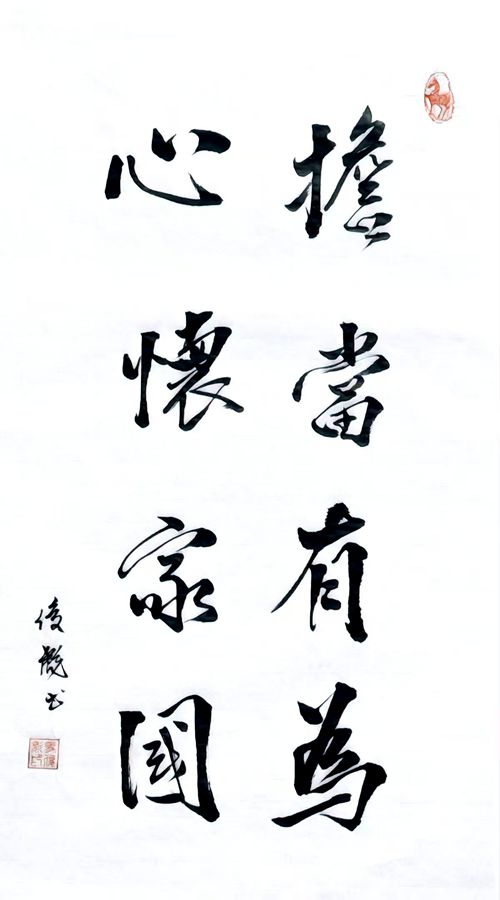 擔當有為
心懷家國
俊彪书